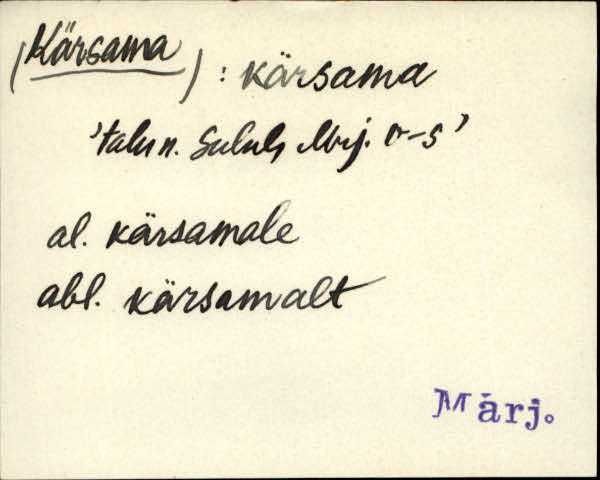 (Kärsama) : kärsama
'talu n. Suluh Mrj. v-s'
al. kärsamale
abl. kärsamalt
Märj.